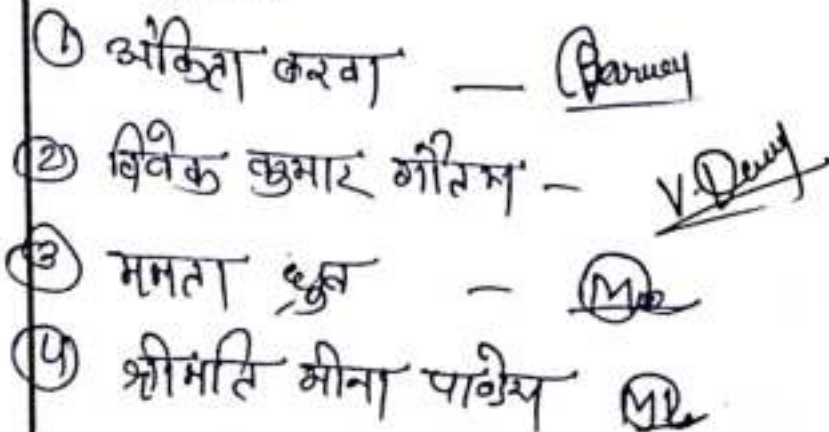 ① अंकिता करवा —
② विवेक कुमार गौतम - V.
③ ममता ध्रुव -
④ श्रीमति मीना पाण्डेय